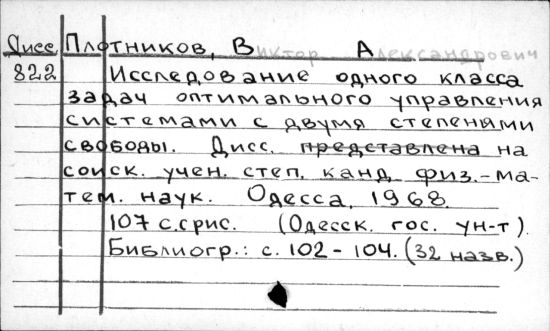 Дисс Плотников, Виктор Александрович
822 Исследование одного класса
задач оптимального управления
системами с двумя степенями
свободы. Дисс. представлена на
соиск. учен. степ. канд. физ.-ма-
тем. наук. Одесса, 1968.
107 с.с рис. (Одесск. гос. ун-т).
Библиогр.: с. 102 - 104. (32 назв.)